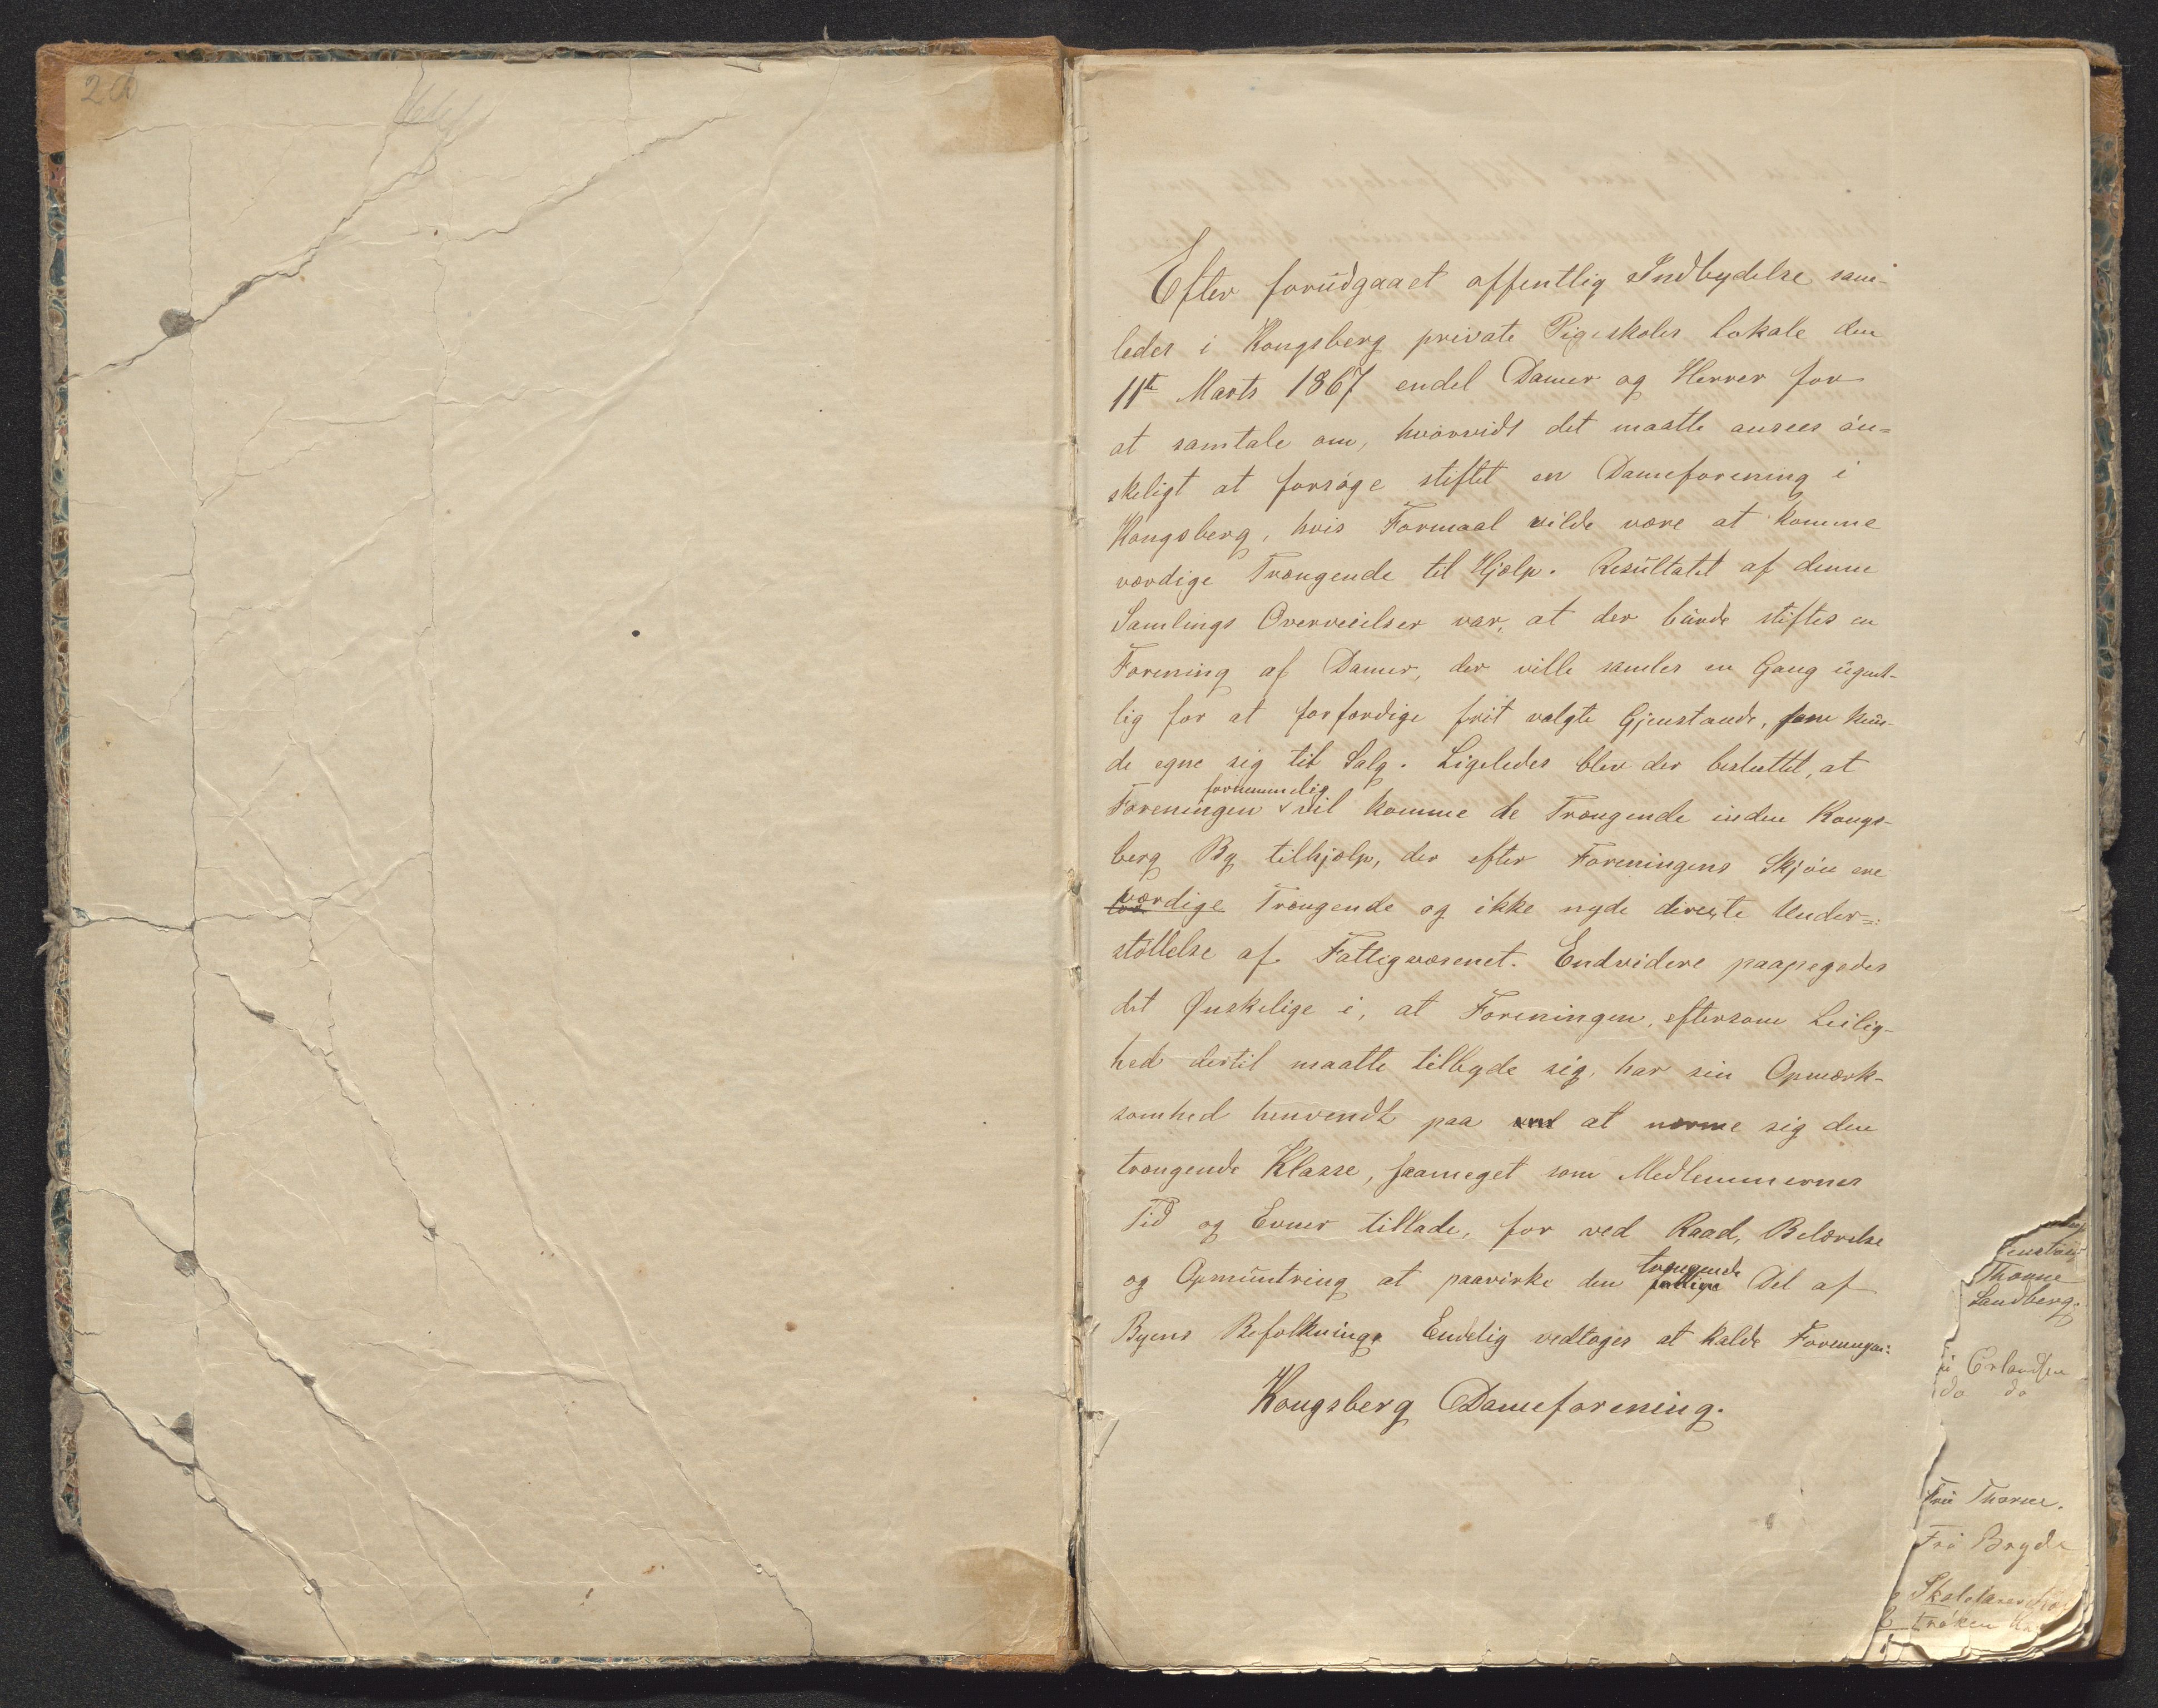 Efter forudgaaet offentlig Indbydelse sam-
ledes i Kongsberg private Pigeskoles Lokale den
11te Marts 1867 endel Damer og Herrer for
at samtale om, hvorvidt det maatte ansees ön=
skeligt at forsøge stiftet en Dameforening i
Kongsberg, hvis Formaal vilde være at komme
værdige Trængende til Hjælp. Resultatet af denne
Samlings Overveielser var, at der burde stiftes en
Forening af Damer, der ville samles en Gang ugent-
lig for at forfærdige frit valgte Gjenstande, som kun-
de egne sig til Salg. Ligeledes blev der besluttet, at
Foreningen fornemmelig vil komme de Trængende inden Kongs-
berg By tilhjælp, der efter Foreningens Skjön ere
værdige Trængende og ikke nyde directe Under=
støttelse af Fattigvæsenet. Endvidere paapegedes
det Ønskelige i, at Foreningen, eftersom Leilig-
hed dertil maatte tilbyde sig, har sin Opmærk-
somhed henvendt paa at nærme sig den
trængende Klasse, saameget som Medlemmernes
Tid og Evner tillade, for ved Raad, Belærelse
og Opmuntring at paavirke den trængende Del af
Byens Befolkning. Endelig vedtoges at kalde Foreningen:
Kongsberg Dameforening.
Thorne
Sandberg.
Erlandsen
do do
Fru Thorne.
Fru Bryde
Fröken